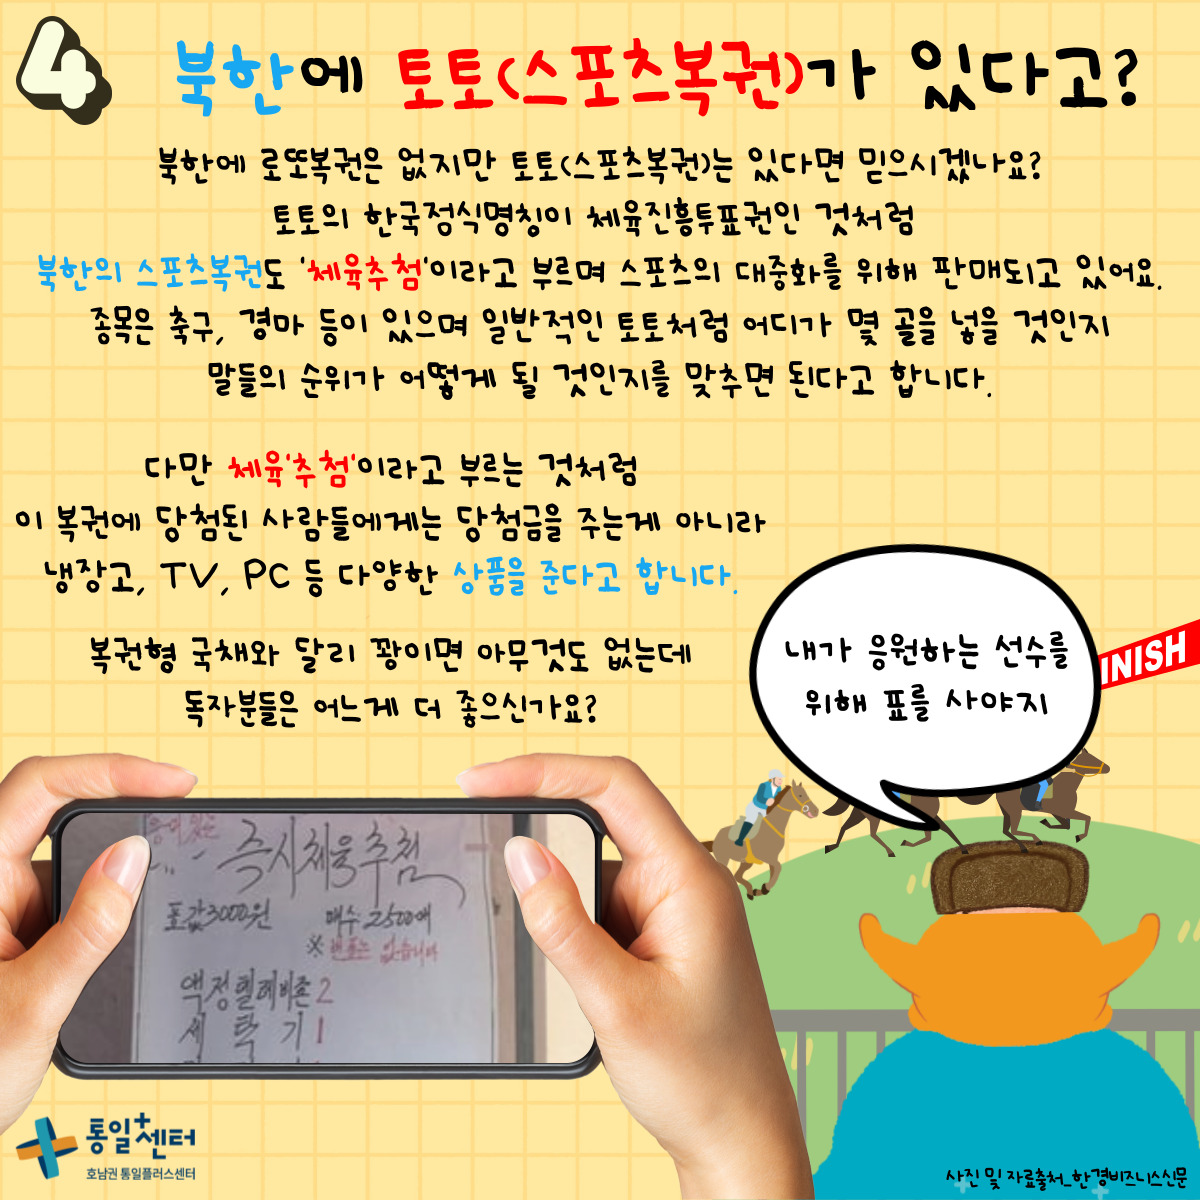 4
북한에 토토(스포츠복권)가 있다고?
북한에 로또복권은 없지만 토토(스포츠복권)는 있다면 믿으시겠나요?
토토의 한국정식명칭이 체육진흥투표권인 것처럼
북한의 스포츠복권도 '체육추첨'이라고 부르며 스포츠의 대중화를 위해 판매되고 있어요.
종목은 축구, 경마 등이 있으며 일반적인 토토처럼 어디가 몇 골을 넣을 것인지
말들의 순위가 어떻게 될 것인지를 맞추면 된다고 합니다.
다만 체육'추첨'이라고 부르는 것처럼
이 복권에 당첨된 사람들에게는 당첨금을 주는게 아니라
냉장고, TV, PC 등 다양한 상품을 준다고 합니다.
복권형 국채와 달리 꽝이면 아무것도 없는데
독자분들은 어느게 더 좋으신가요?
내가 응원하는 선수를
위해 표를 사야지
INISH
즉시체육추첨
표값3000원 매수 2500매
※ 없습니다
액정텔레비죤 2
세탁기 1
통일+센터
호남권 통일플러스센터
사진 및 자료출처_한경비즈니스신문